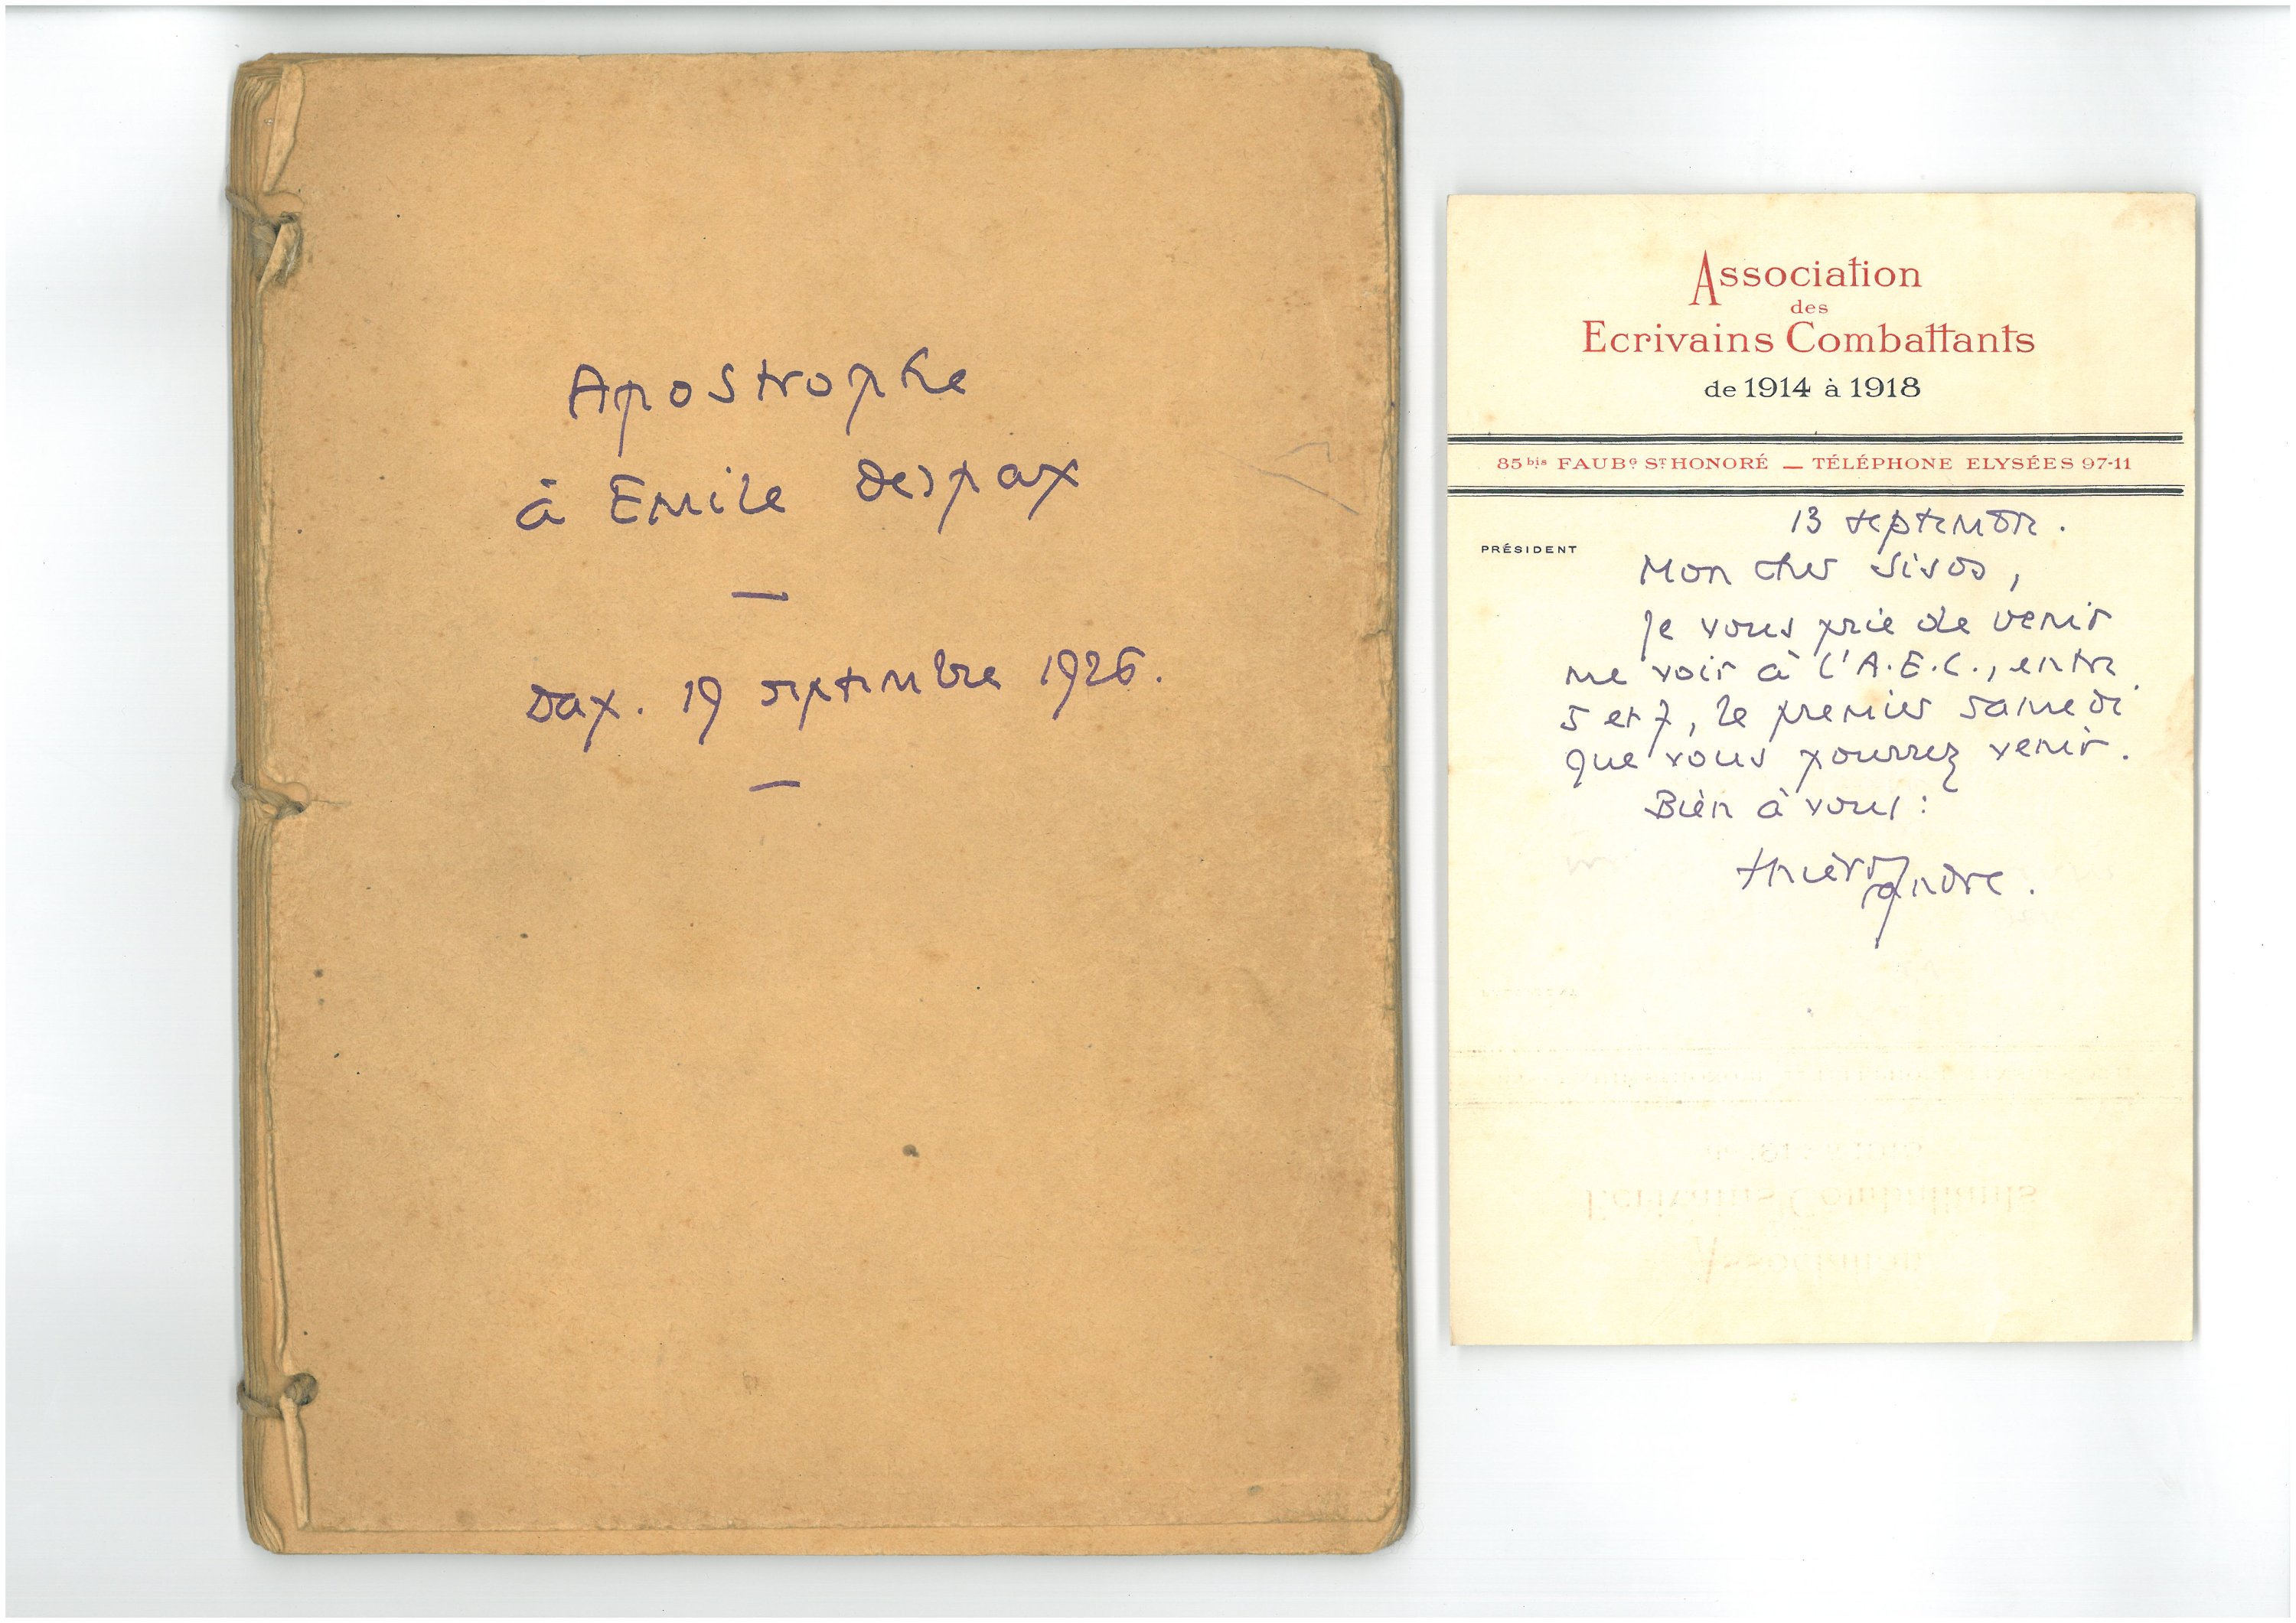 Apostrophe
à Emile Despax
—
Dax. 19 septembre 1926.
—
Association
des
Ecrivains Combattants
de 1914 à 1918
85 bis FAUBG ST HONORÉ — TÉLÉPHONE ELYSÉES 97-11
PRÉSIDENT
13 septembre.
Mon cher
Je vous prie de venir
me voir à l'A.E.C., entre
5 et 7, le premier samedi
que vous pourrez venir.
Bien à vous :